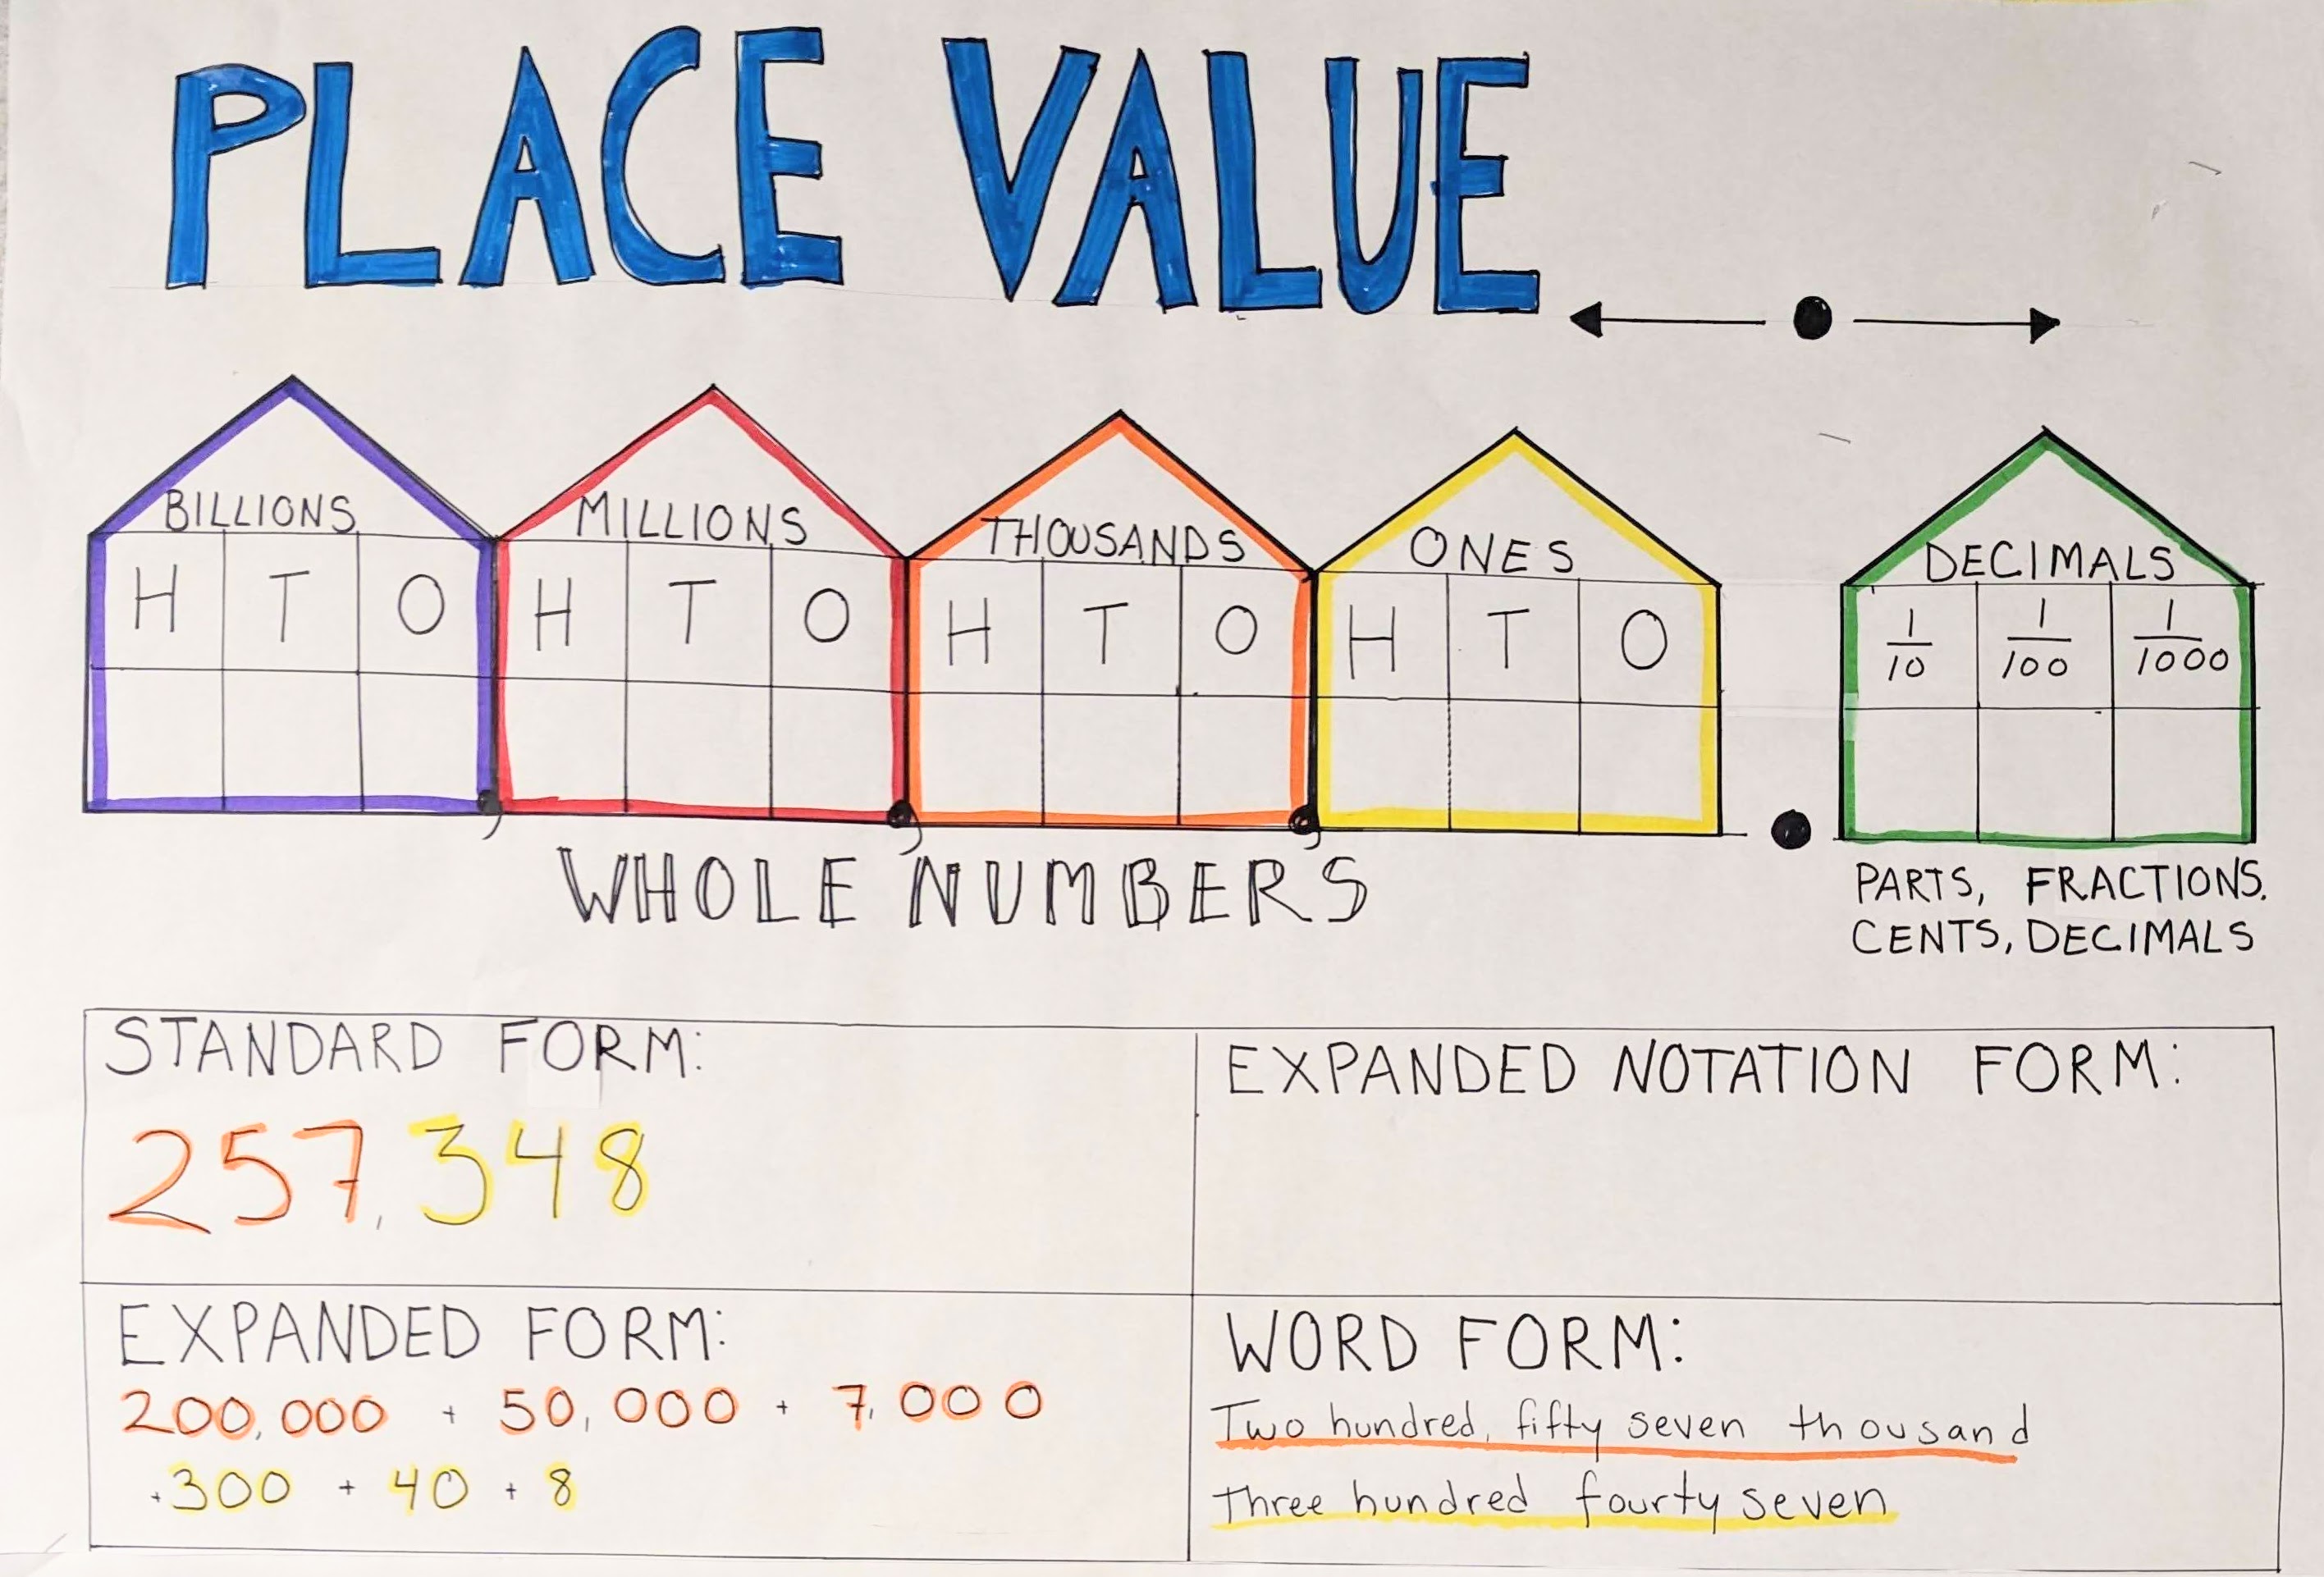 PLACE VALUE
BILLIONS MILLIONS THOUSANDS ONES DECIMALS
H T O H T O H T O H T O 1/10 1/100 1/1000
, , , .
WHOLE NUMBERS
PARTS, FRACTIONS.
CENTS, DECIMALS
STANDARD FORM:
257,348
EXPANDED NOTATION FORM:
EXPANDED FORM:
200,000 + 50,000 + 7,000
+300 + 40 + 8
WORD FORM:
Two hundred, fifty seven thousand
Three hundred fourty seven